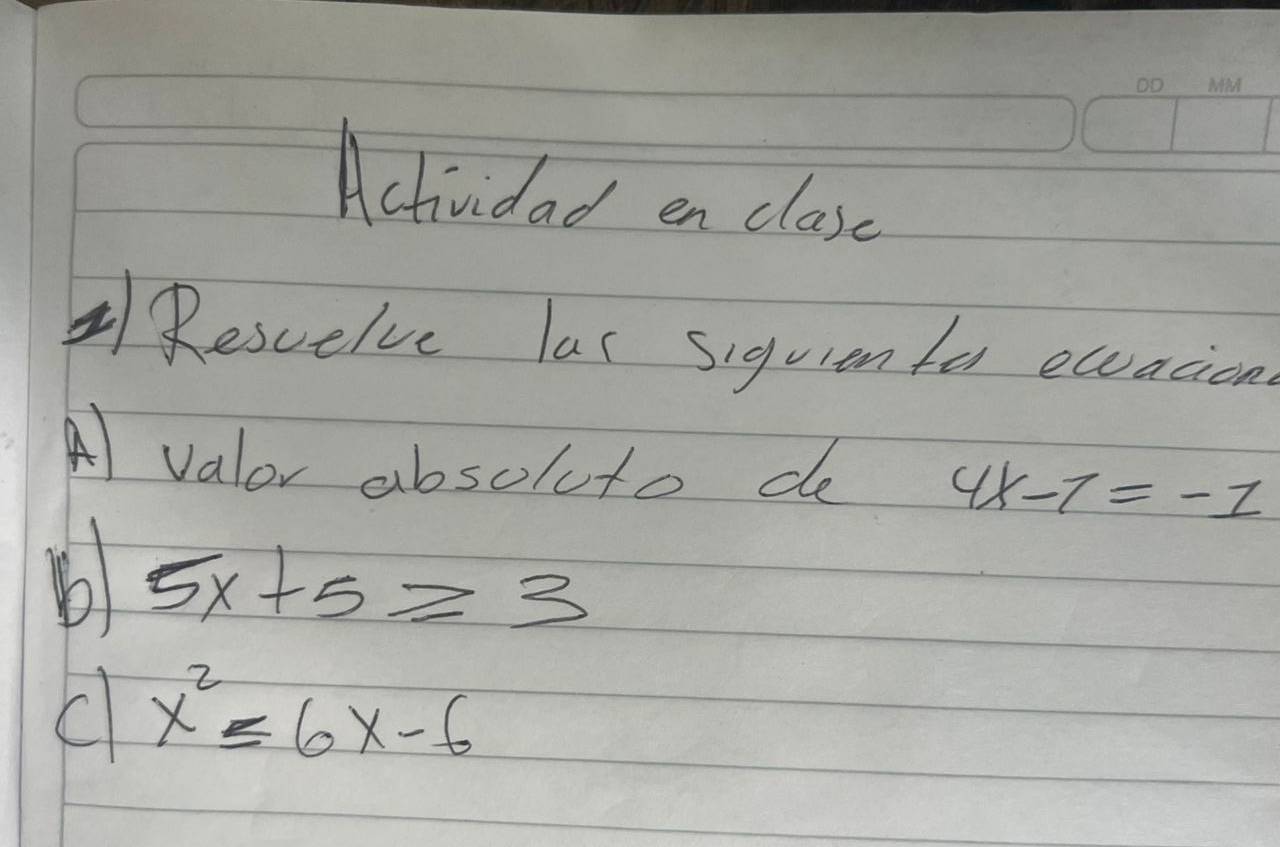 DD MM
Actividad en clase
1) Resuelve las siguientes ecuacione
A) valor absoluto de 4x-1 = -1
b) 5x+5 ≥ 3
c) x² ≤ 6x-6